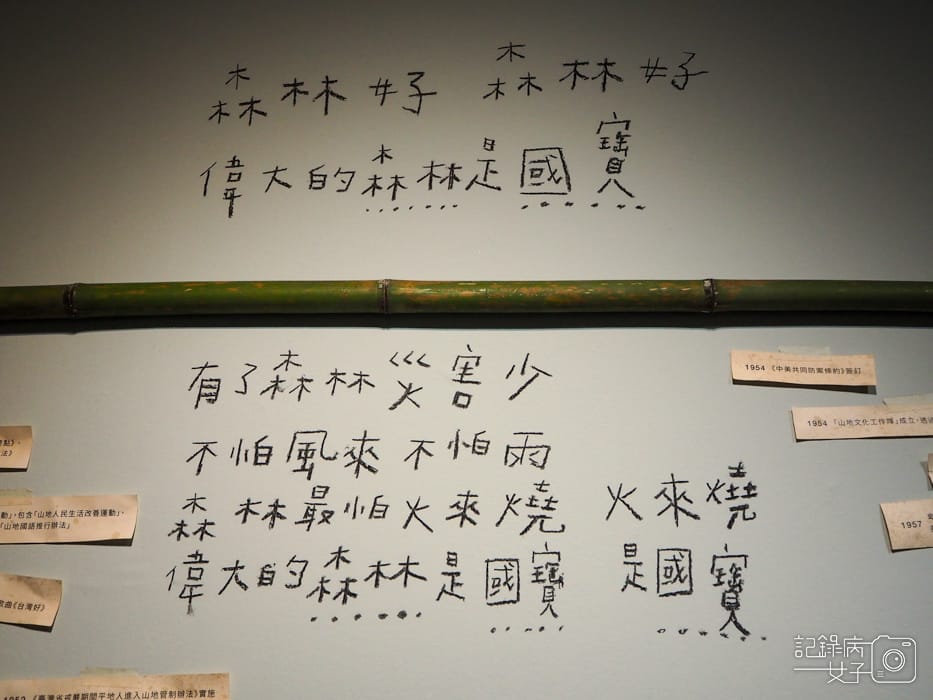 森林好 森林好
偉大的森林是國寶
有了森林災害少
不怕風來不怕雨
森林最怕火來燒 火來燒
偉大的森林是國寶 是國寶
1954 《中美共同防禦條約》簽訂
1954 「山地文化工作隊」成立，透過
點》、
法》
動」，包含「山地人民生活改善運動」、
「山地國語推行辦法」
1957
歌曲《台灣好》
1952 《臺灣省戒嚴期間平地人進入山地管制辦法》實施
記錄病
女子